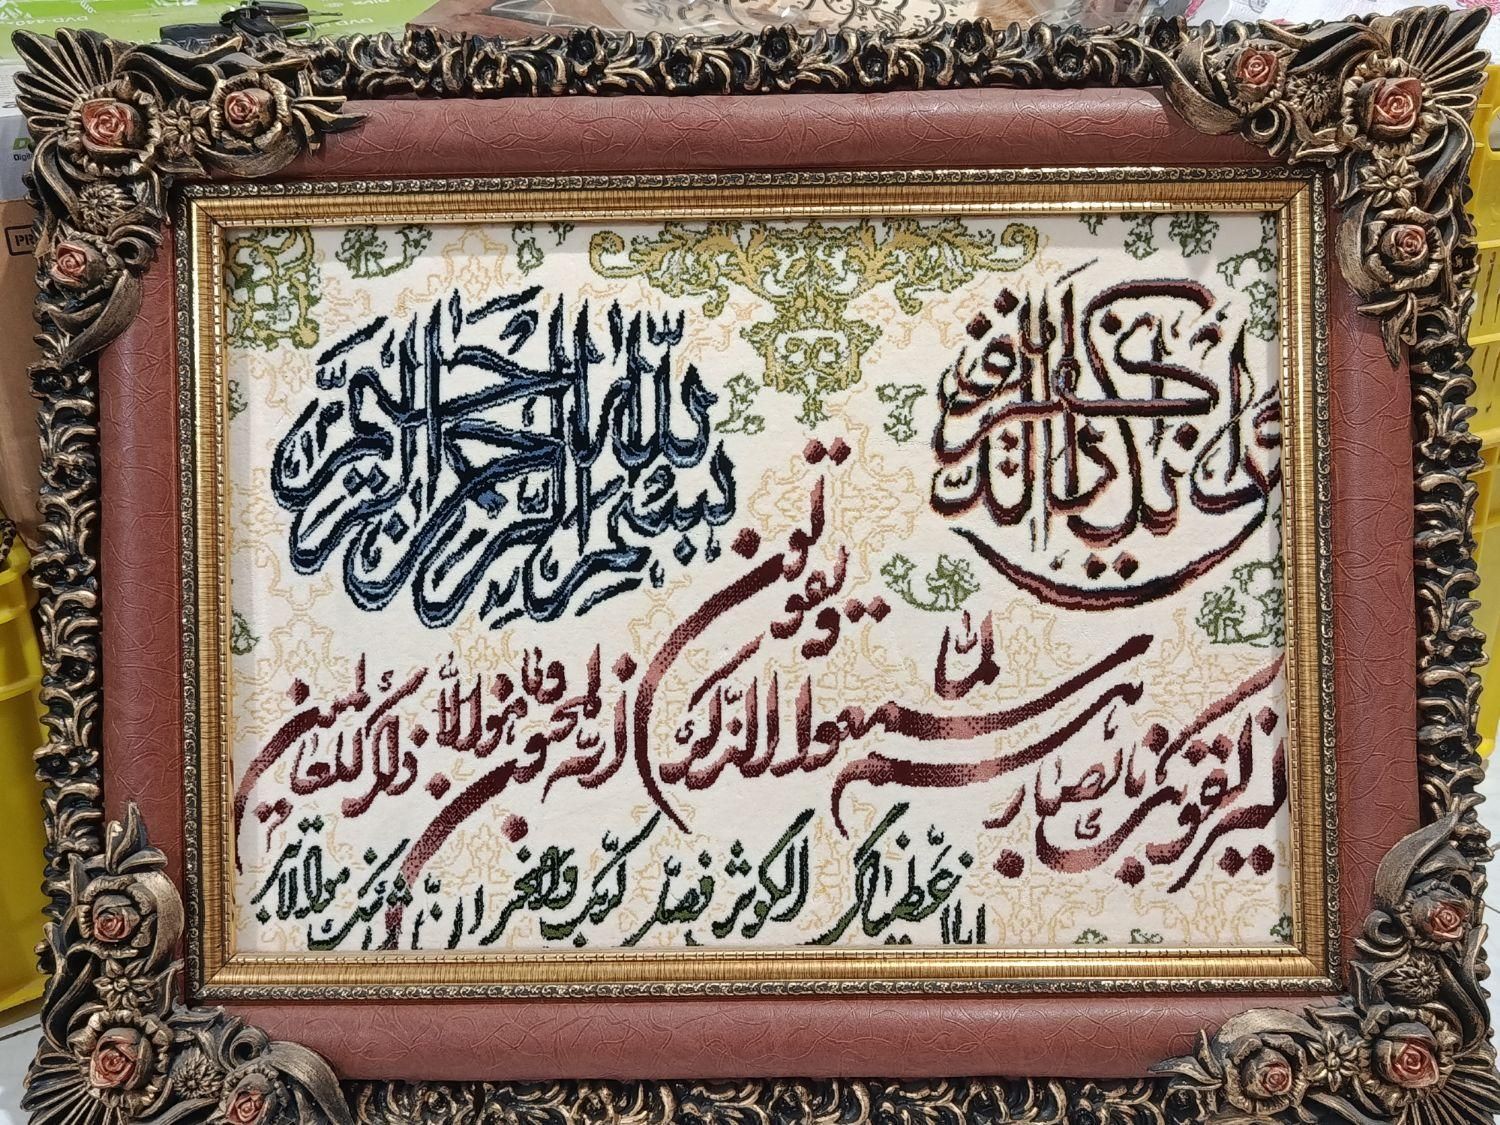 بسم الله الرحمن الرحیم
وان یکاد الذین کفروا
لیزلقونک بابصارهم لما سمعوا الذکر ویقولون انه لمجنون وما هو الا ذکر للعالمین
انا اعطیناک الکوثر فصل لربک وانحر ان شانئک هو الابتر